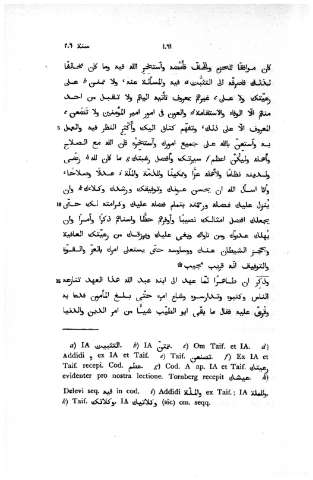 سنة ٢٠٦ ١٠٦١
كان موافقا للحزم والحق فأمضه واستخر الله فيه وما كان مخالفا
لذلك فاصرفه الى التثبت a فيه والمسألة عنه، ولا تمنن b على
رعيتك ولا على c غيرهم بمعروف تأتيه اليهم ولا تقبل من احد
منهم الا الوفاء والاستقامة d والعون فى امور امير المؤمنين ولا تضعن e
المعروف الا على ذلك، وتفهم كتابى اليك وأكثر النظر فيه والعمل
به واستعن بالله على جميع امورك واستخره فان الله مع الصلاح
وأهله وليكن اعظم f سيرتك وأفضل رغبتك g ما كان لله h رضى
ولدينه نظاما ولأهله عزا وتمكينا وللذمة والملة i عدلا وصلاحا،
وأنا اسأل الله ان يحسن عونك وتوفيقك ورشدك وكلاءتك k وان
ينزل عليك فضله ورحمته بتمام فضله عليك وكرامته لك حتى
يجعلك افضل امثالك نصيبا وأوفرهم حظا وأسناهم ذكرا وأمرا وان
يهلك عدوك ومن ناواك وبغى عليك ويرزقك من رعيتك العافية
ويحجز الشيطان عنك ووساوسه حتى يستعلى امرك بالعز والقوة
والتوفيق انه قريب مجيب
وذكر ان طاهرا لما عهد الى ابنه عبد الله هذا العهد تنازعه
الناس وكتبوه وتدارسوه وشاع امره حتى بلغ المأمون فدعا به
وقرئ عليه فقال ما بقى ابو الطيب شيئا من امر الدين والدنيا
a) IA التثبيت. b) IA تمن. c) Om Taif. et IA. d)
Addidi و ex IA et Taif. e) Taif. تصنعن. f) Ex IA et
Taif. recepi. Cod. عظم. g) Cod. A ap. IA et Taif. رعيتك
evidenter pro nostra lectione. Tornberg recepit عيشك. h)
Delevi seq. فيه in cod. i) Addidi والملة ex Taif.; IA والملة.
k) Taif. وكلاتك, IA وكلائتك (sic) cm. seqq.